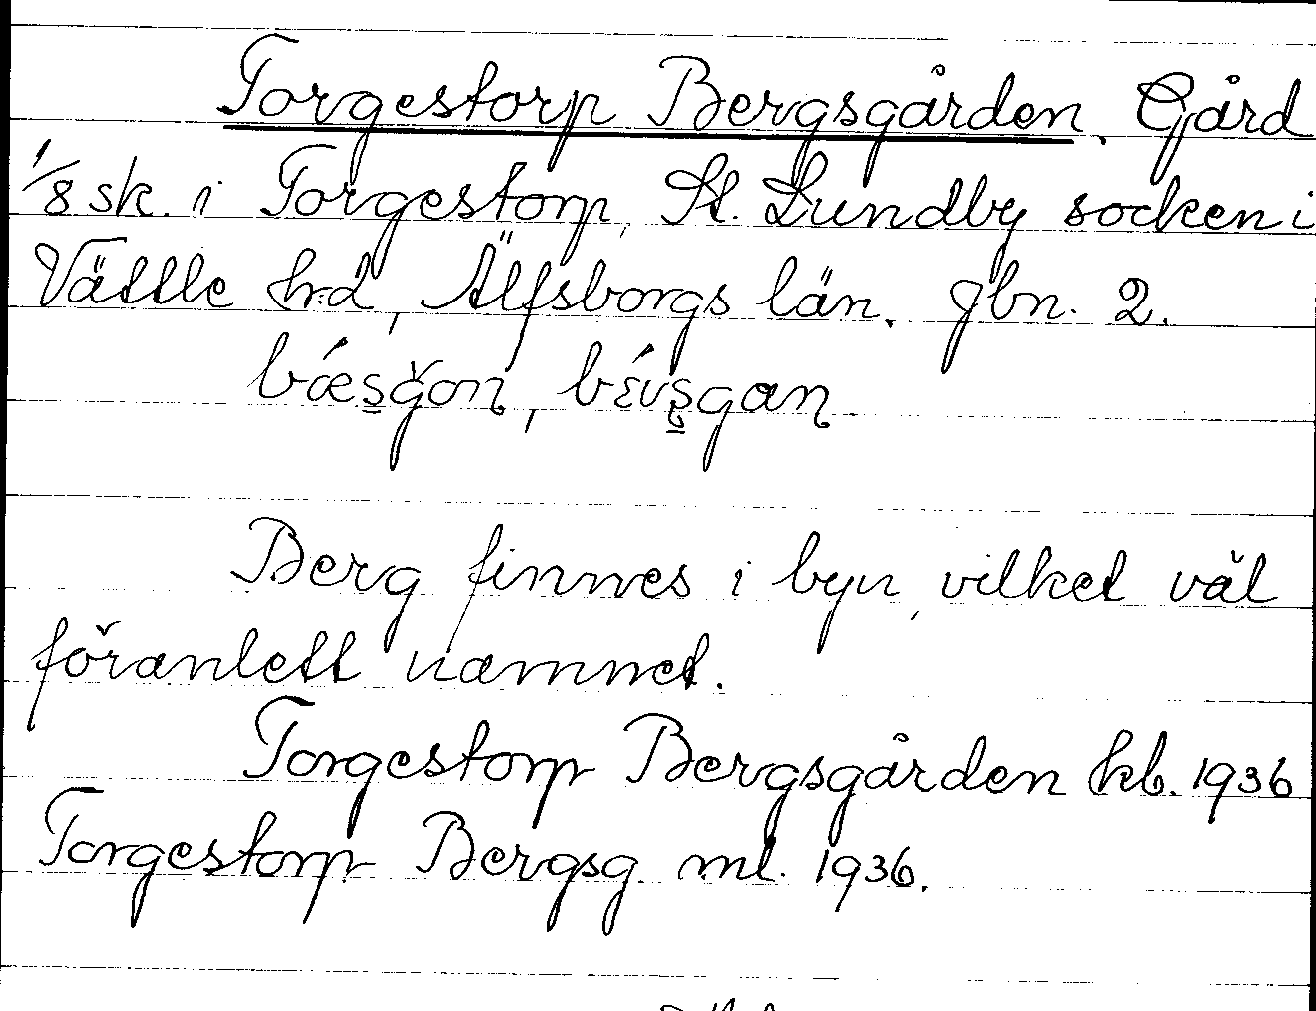 Torgestorp Bergsgården. Gård
1/8 sk. i Torgestorp, St. Lundby socken i
Vättle hd, Älfsborgs län. gbn. 2.
Berg finnes i byn, vilket väl
föranlett namnet.
Torgestorp Bergsgården kb. 1936
Torgestorp Bergsg ml. 1936.